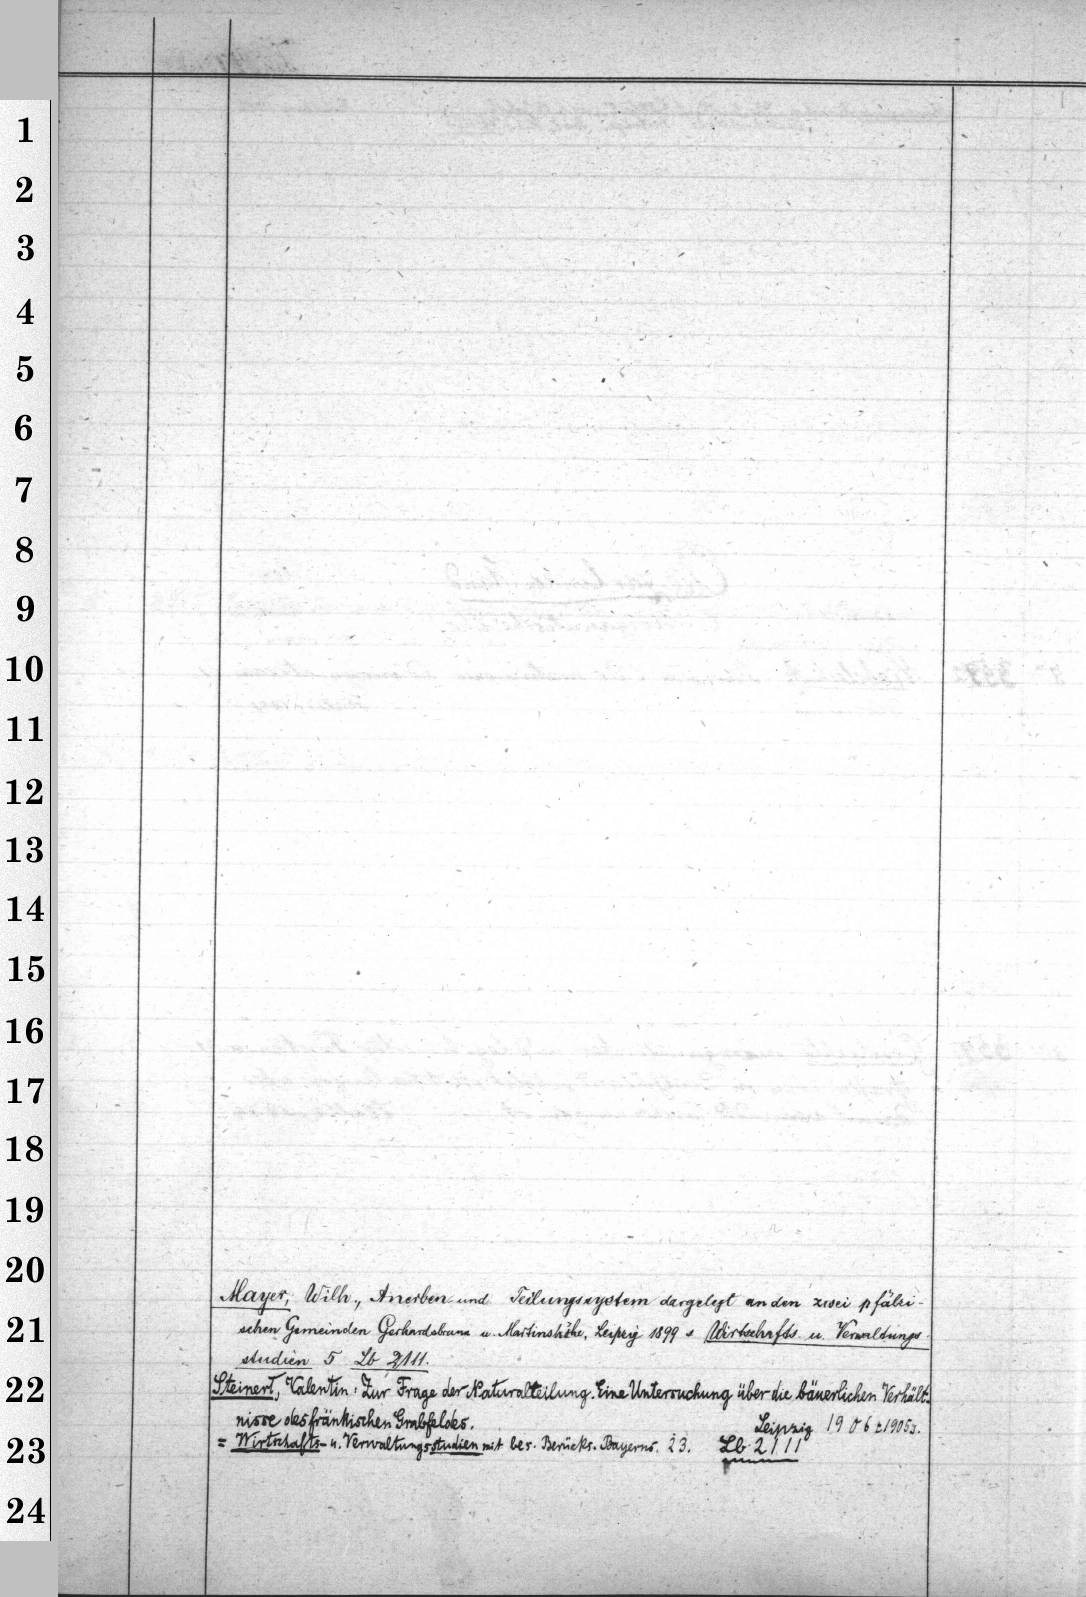 1
2
3
4
5
6
7
8
9
10
11
12
13
14
15
16
17
18
19
20
Mayer, Wilh., Anerben- und Teilungssystem dargelegt an den zwei pfälzi-
21
schen Gemeinden Gerhardsbrunn u. Martinshöhe, Leipzig 1899 s Wirtschafts- u. Verwaltungs-
studien 5 Lb 2111.
22
Steinert, Valentin: Zur Frage der Naturalteilung. Eine Untersuchung über die bäuerlichen Verhält-
nisse des fränkischen Grabfeldes. Leipzig 1906 [1905].
23
= Wirtschafts- u. Verwaltungsstudien mit bes. Berücks. Bayerns. 23. Lb 2111
24